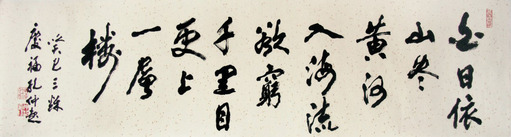 白日依
山尽
黄河
入海流
欲窮
千里目
更上
一層
樓
癸巳三
慶福